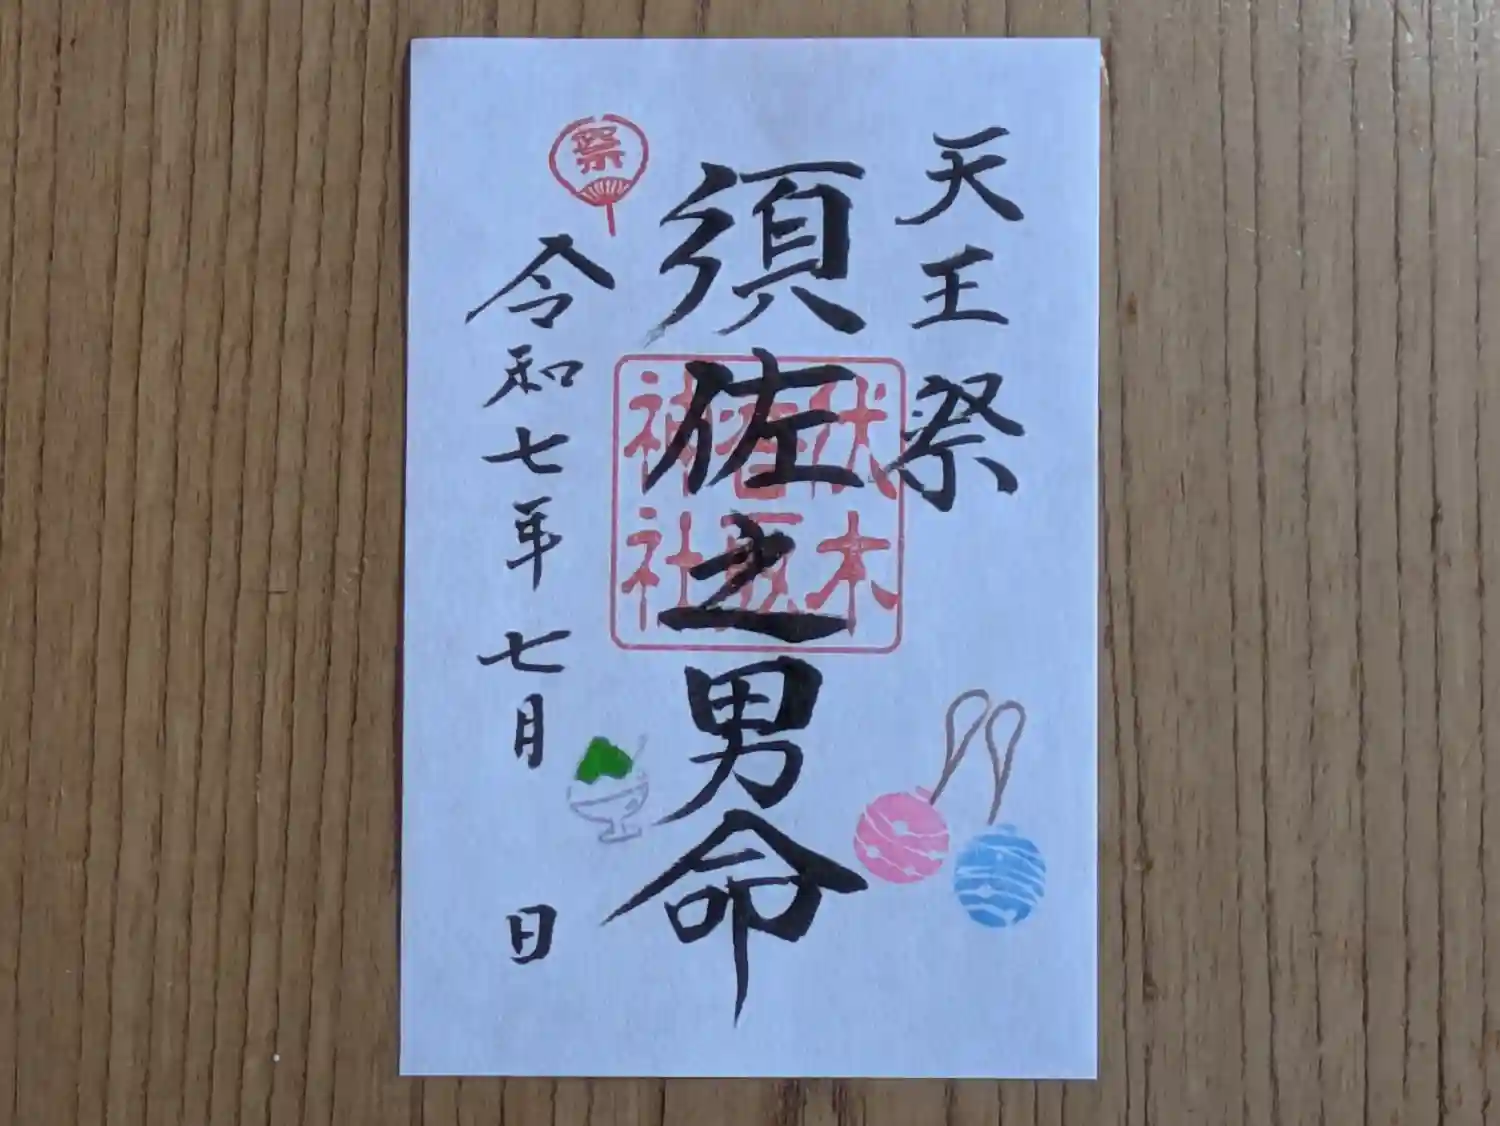 天王祭
須佐之男命
伏木
香取
神社
祭
令和七年七月 日